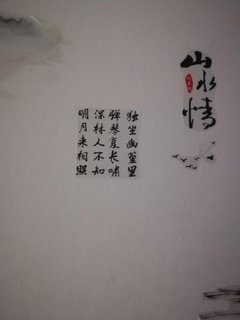 山水情
独坐幽篁里
弹琴复长啸
深林人不知
明月来相照